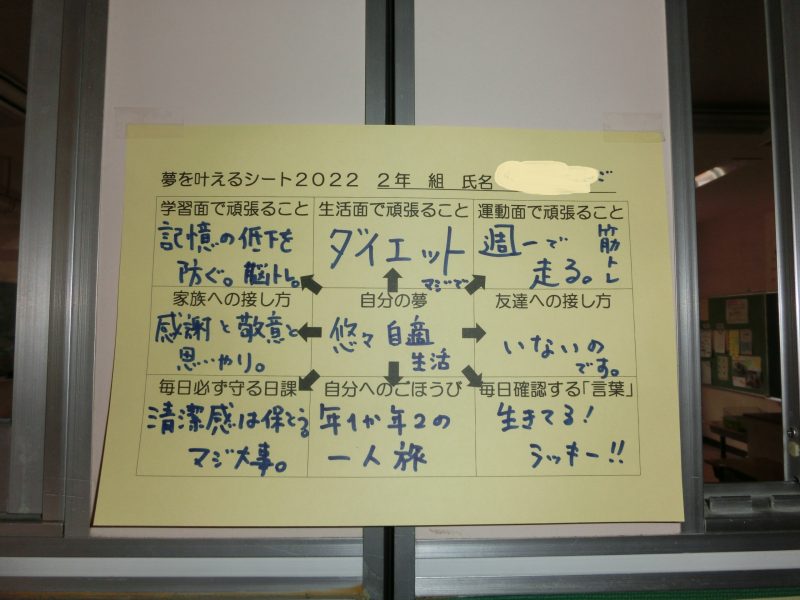 夢を叶えるシート2022 2年 組 氏名 ご
学習面で頑張ること
記憶の低下を
防ぐ。脳トレ。
生活面で頑張ること
ダイエット
マジで
運動面で頑張ること
週一で
走る。
筋トレ
家族への接し方
感謝と敬意と
思いやり。
自分の夢
悠々自適
生活
友達への接し方
いないの
です。
毎日必ず守る日課
清潔感は保とう。
マジ大事。
自分へのごほうび
年1か年2の
一人旅
毎日確認する「言葉」
生きてる!
ラッキー!!